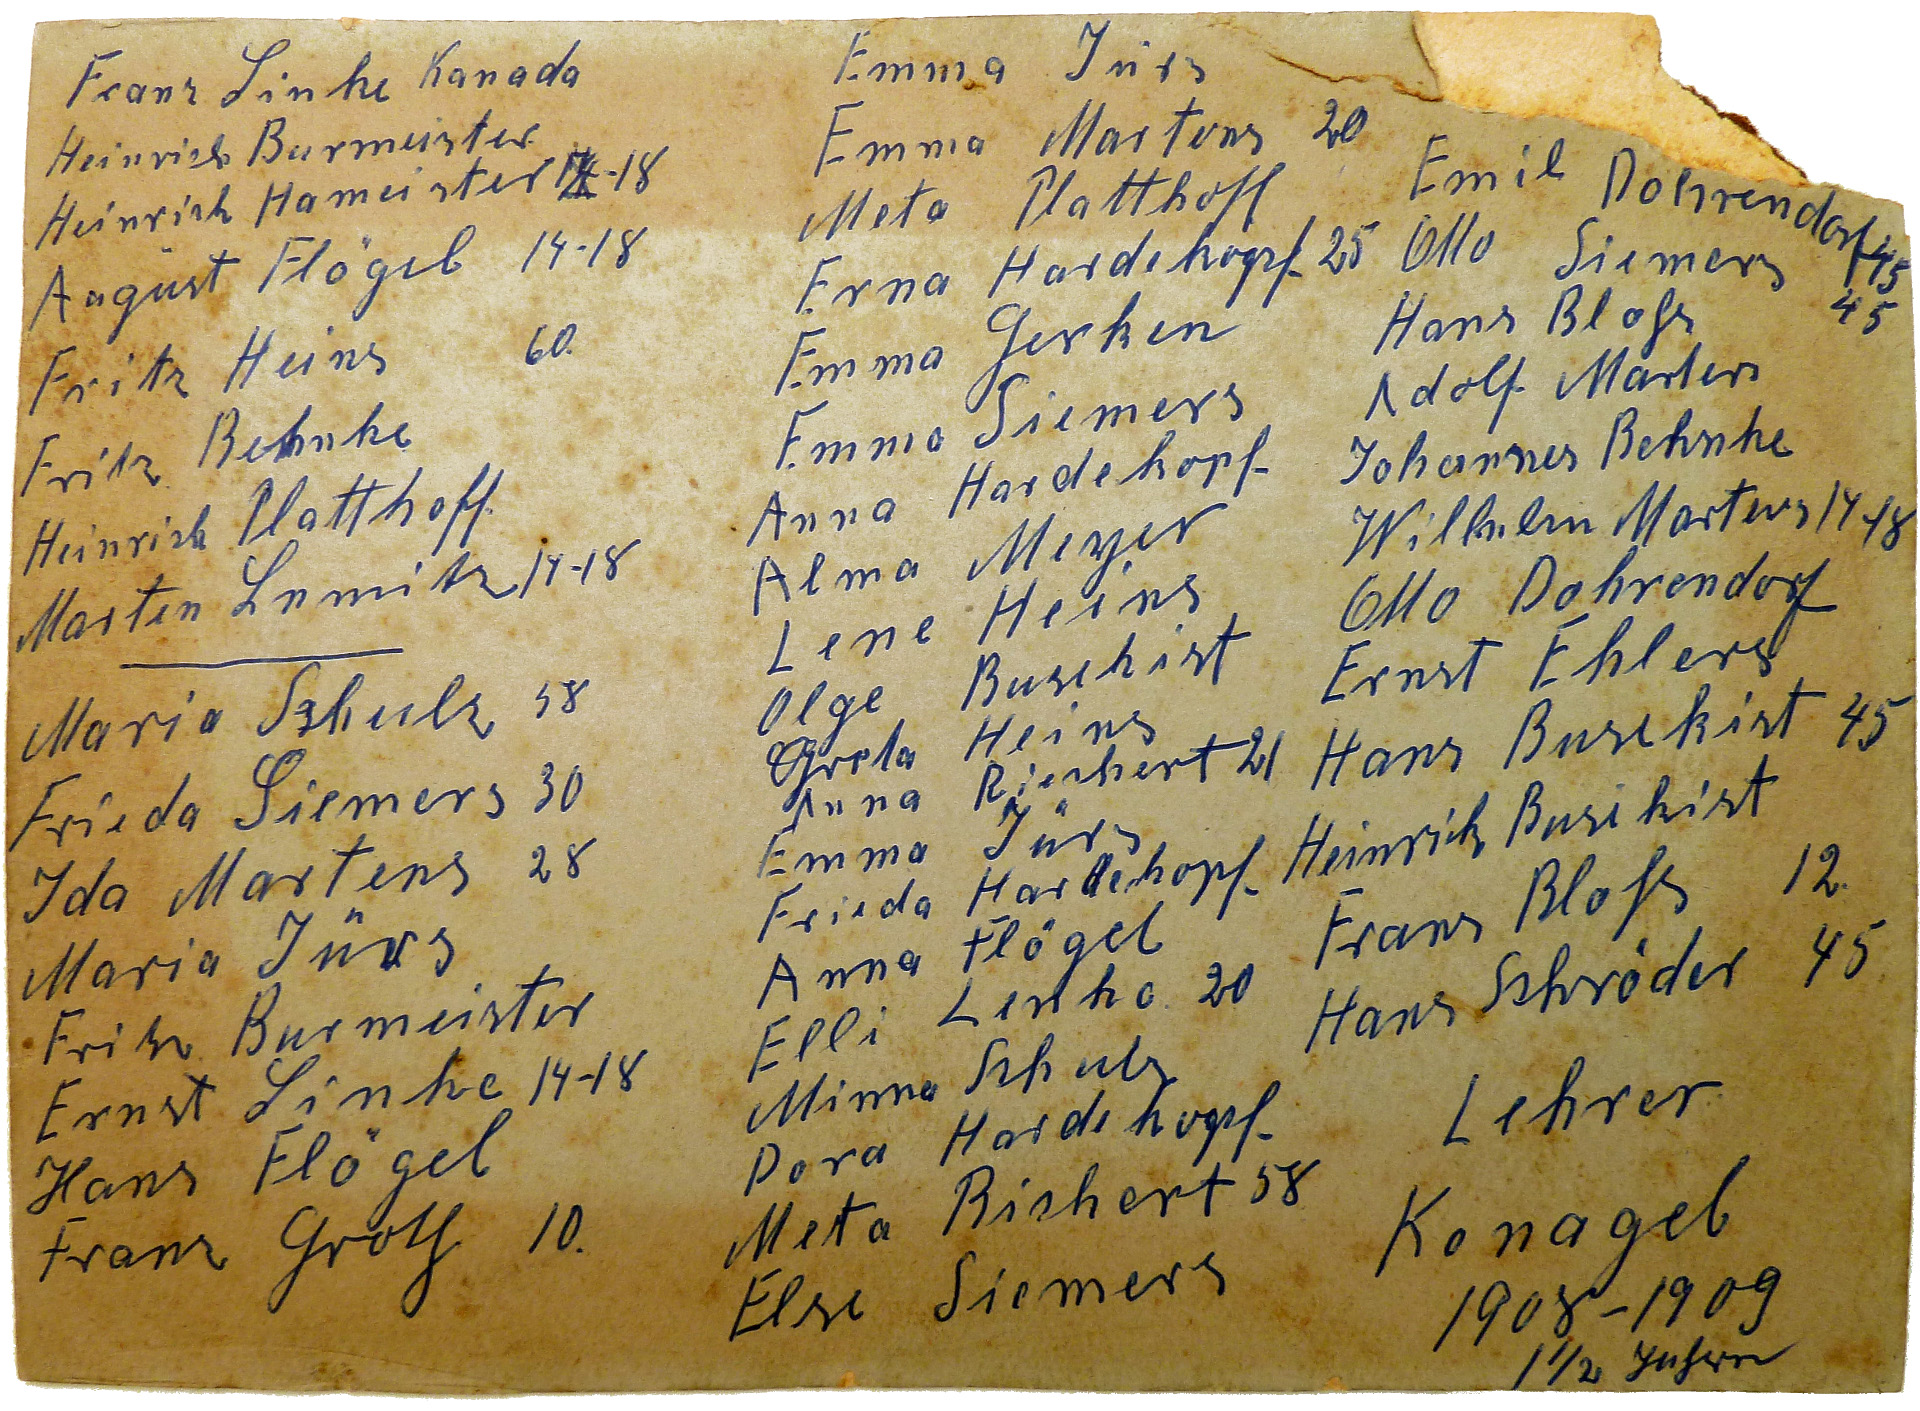 Franz Linke Kanada
Heinrich Burmeister
Heinrich Hameister 14-18
August Flögel 14-18
Fritz Heins 60.
Fritz Behnke
Heinrich Platthoff
Marten Lumitz 14-18
Maria Schulz 58
Frieda Siemers 30
Ida Martens 28
Maria Jürs
Fritz Burmeister
Ernst Linke 14-18
Hans Flögel
Franz Groth 10.
Emma Jürs
Emma Martens 20
Meta Platthoff
Erna Hardekopf 25
Emma Gerken
Emma Siemers
Anna Hardekopf
Alma Meyer
Lene Heins
Olge Busekist
Greta Heins
Anna Riechert 21
Emma Jürs
Frieda Hardekopf
Anna Flögel
Elli 20
Minna Schulz
Dora Hardekopf
Meta Richert 58
Else Siemers
Emil Dohrendorf 45
Otto Siemers 45
Hans Bloß
Adolf Martens
Johannes Behnke
Wilhelm Martens 14-18
Otto Dohrendorf
Ernst Ehlers
Hans Busekist 45
Heinrich Busekist
Franz Bloß 12.
Hans Schröder 45
Lehrer
Konagel
1908-1909
1 1/2 Jahren